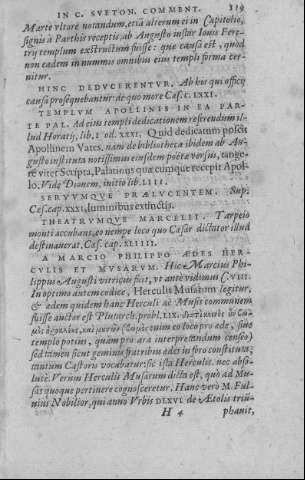 IN C. SVETON. COMMENT. 319
Marte vltore notandum, etiā alterum ei in Capitolio,
signis à Parthis receptis, ab Augusto instar Iouis Fere-
trij templum exstructum fuisse: quæ causa est, quod
non eadem in nummis omnibus eius templi forma cer-
nitur.
HINC DEDVCERENTVR. Ab hoc qui officij
causa prosequebantur: de quo more Caf. c. LXXI.
TEMPLVM APOLLINIS IN EA PAR-
TE PAL. Ad eius templi dedicationem referendum il-
lud Horatij, lib. 1 od. XXXI, Quid dedicatum poscit
Apollinem Vates. nam de bibliotheca ibidem ab Au-
gusto instituta notissimus eiusdem poëtæ versus, tange-
re vitet Scripta, Palatinus quæcunque recepit Apol-
lo. Vide Dionem, initio lib. LIII.
SERVVMQVE PRÆLVCENTEM. Sup.
Cæs. cap. XXXI, luminibus exstinctis.
THEATRVMQVE MARCELLI. Tarpeio
monti accubans, eo nempe loco quo Cæsar dictator illud
destinauerat, Cæs. cap. XLIIII.
A MARCIO PHILIPPO ÆDES HER-
CVLIS ET MVSARVM. Hic Marcius Phi-
lippus Augusti vitricus fuit, vt ante vidimus c. VIII.
In optimo autem codice, Herculis Musarum legitur,
& ædem quidem hanc Herculi ac Musis communem
fuisse auctor est Plutarch. probl. LIX. κοινὸς βω-
μὸς ἡρακλέους καὶ μουσῶν (βωμὸς enim eo loco pro æde, siue
templo potius, quàm pro ara interpretandum censeo)
sed tamen sicut geminis fratribus ædes in foro constituta,
tantùm Castoris vocabatur: sic ista Herculis. nec abso-
lutè. Verùm Herculis Musarum dicta est, quò ad Mu-
sas quoque pertinere cognosceretur. Hanc verò M. Ful-
uius Nobilior, qui anno Vrbis DLXVI de Ætolis triū-
H 4 phauit,